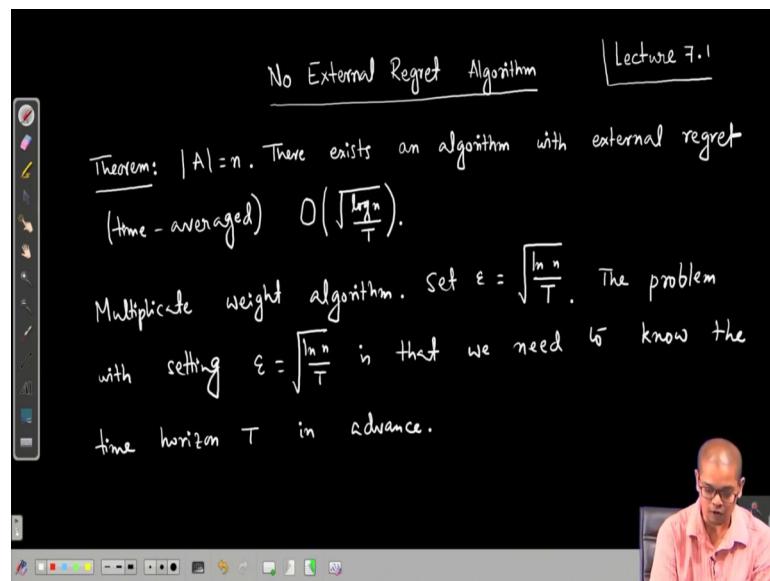 No External Regret Algorithm
Lecture 7.1
Theorem: |A| = n. There exists an algorithm with external regret
(time-averaged) O(√(log n / T)).
Multiplicate weight algorithm. Set ε = √(ln n / T). The problem
with setting ε = √(ln n / T) is that we need to know the
time horizon T in advance.